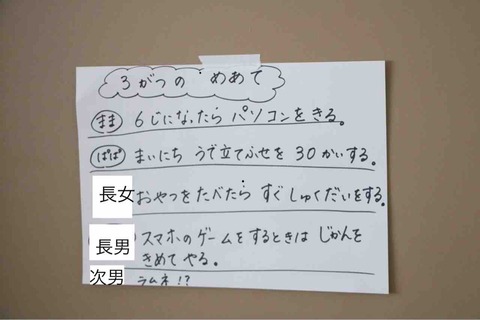 3がつの めあて
まま 6じになったら パソコンをきる。
ぱぱ まいにち うで立てふせを 30かいする。
長女 おやつをたべたら すぐしゅくだいをする。
長男 スマホのゲームをするときは じかんを
きめて やる。
次男 ラムネ!?